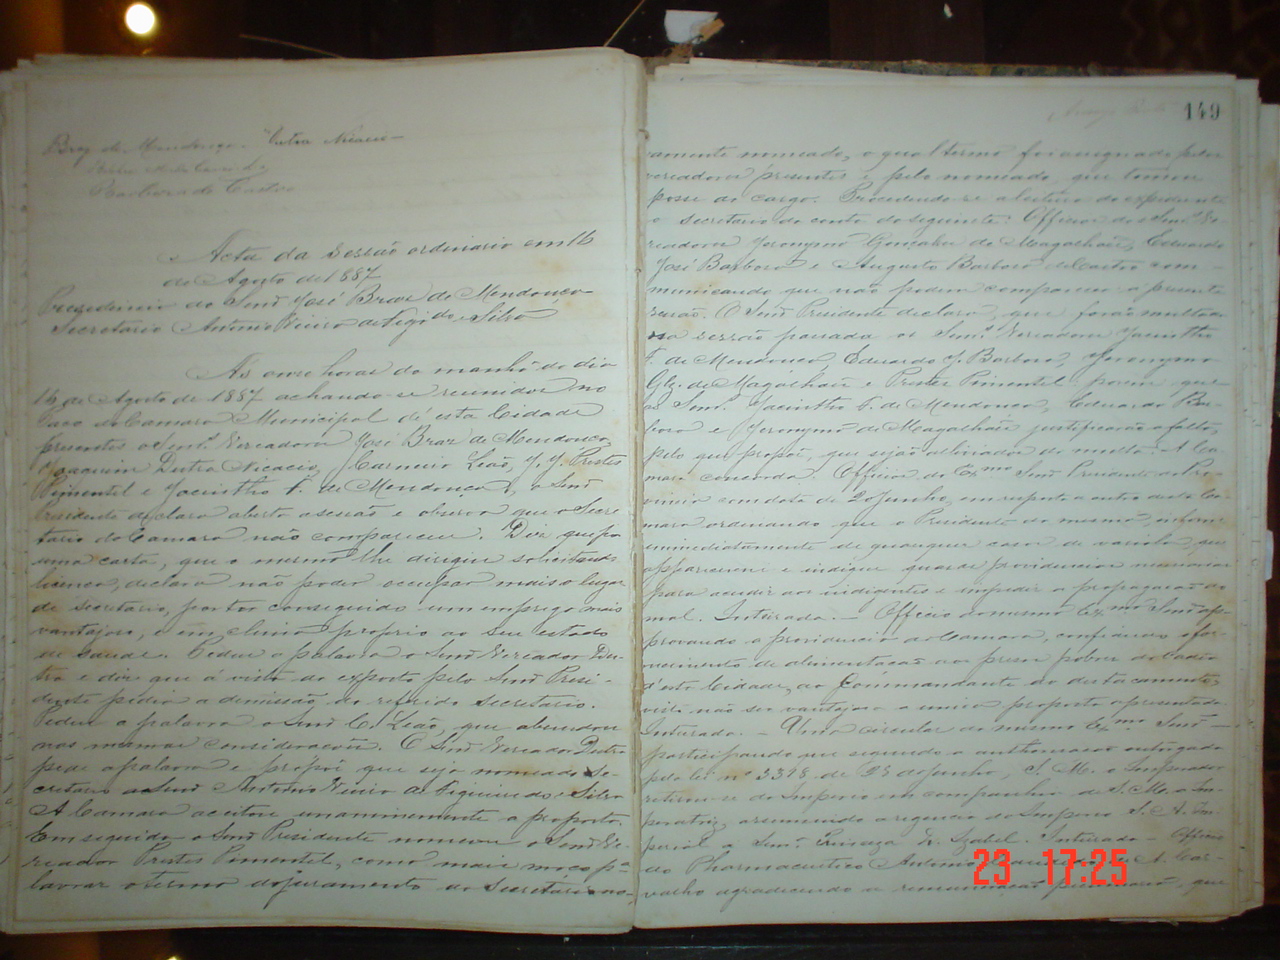 Braz de Mendonça. Dutra Nicacio
Barbosa de Castro
Acta da sessão ordinaria em 16
de Agosto de 1887
Prezedencia do Senr. José Braz de Mendonça
Secretario Antonio Vieira de Seqi do e Silva
As onze horas da manhã do dia
16 de Agosto de 1887 achando-se reunidos no
Paco da Camara Municipal d'esta Cidade
presentes os Senrs. Vereadores José Braz de Mendonça,
Joaquim Dutra Nicacio, Carneiro Leão, J. J. Prestes
Pimentel e Jacintho F. de Mendonça, o Senr.
Presidente declara aberta a sessão e observa que o Secre
tario da Camara não compareceu. Diz que por
uma carta, que o mesmo lhe dirigiu solicitando
licença, declara não poder occupar mais o lugar
de secretario, por ter conseguido um emprego mais
vantajoso, e em clima proprio ao seu estado
de saude. Pedeu a palavra o Senr. Vereador Du-
tra e dize que á vista do exposto pelo Senr. Presi-
dente pedia a demissão do referido secretario.
Pedeu a palavra o Senr. C. Leão, que abundou
nas mesmas considerações. O Senr. Vereador Dutra
pede a palavra e propõe que seja nomeado Se-
cretario o Senr. Antonio Vieira de Sigueiredo e Silva
A Camara aceitou unanimemente a proposta.
Em seguida o Senr. Presidente nomeou o Senr. Ve-
reador Prestes Pimentel, como mais moço pa.
lavrar o termo do juramento do Secretario no-
149
vamente nomeado, o qual termo foi assignado pelos
vereadores presentes e pelo nomeado, que tomou
posse do cargo. Procedendo-se a leitura do expediente
o secretario da conta do seguinte: Officios dos Senrs. Ve-
readores Jeronymo Gonçalves de Magalhães, Eduardo
José Barbosa e Augusto Barbosa de Castro com-
municando que não podem comparecer a presente
sessão. O Senr. Presidente declara, que forão multados
na sessão passada os Senrs. Vereadores Jacintho
F. de Mendonça, Eduardo J. Barbosa, Jeronymo
Glz. de Magalhães e Prestes Pimentel; porem que
os Senrs. Jacintho F. de Mendonça, Eduardo Bar-
bosa e Jeronymo de Magalhães justificarão a falta,
pelo que propõe, que sejão alliviados da multa. A Ca-
mara concorda. Officio do Exmo. Senr. Presidente da Pro
vincia com data de 2 de Junho, em resposta a outro desta Ca-
mara ordenando que o Presidente da mesma, informe
immediatamente de quaesquer casos de variola, que
apparecerem e indique quaes as providencias necessarias
para acudir aos indigentes e impedir a propagação do
mal. Inteirada. — Officio do mesmo Exmo. Senr. ap-
provando a providencia da Camara, confiando o for-
necimento de alimentação aos presos pobres da Cadêa
d'esta Cidade, ao Commandante do destacamento,
visto não ser vantajosa a unica proposta apresentada.
Inteirada. — Uma circular do mesmo Exmo. Senr.
participando que segundo a authorisação outorgada
pela lei nº 3318 de 25 de Junho, S. M. o Imperador
retirou-se do Imperio em companhia de S. M. a Im-
peratriz, assumindo a regencia do Imperio S. A. Im-
perial a Senr. Princeza D. Izabel. Inteirada. Officio
do Pharmaceutico Antonio A. Car-
valho agradecendo a que
23 17:25